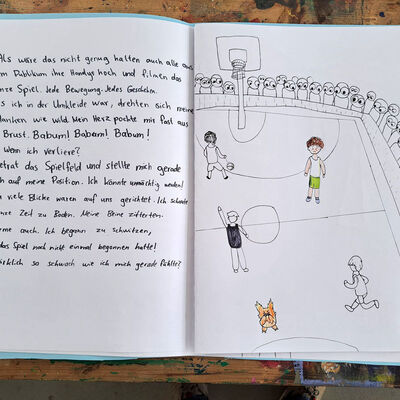 Als wäre das nicht genug halten auch alle aus
m Publikum ihre Handys hoch und filmen das
nze Spiel. Jede Bewegung. Jedes Geschehn.
s ich in der Umkleide war, drehten sich meine
danken wie wild. Mein Herz pochte mir fast aus
Brust. Babum! Babam! Babum!
wenn ich verliere?
etrat das Spielfeld und stellte mich gerade
h auf meine Position. Ich könnte unmächtig werden!
viele Blicke waren auf uns gerichtet. Ich schaute
nze Zeil zu Boden. Meine Beine zitterten.
rme auch. Ich begann zu schwitzen,
das Spiel noch nicht einmal begonnen hatte!
irklich so schwach wie ich mich gerade fühlte?